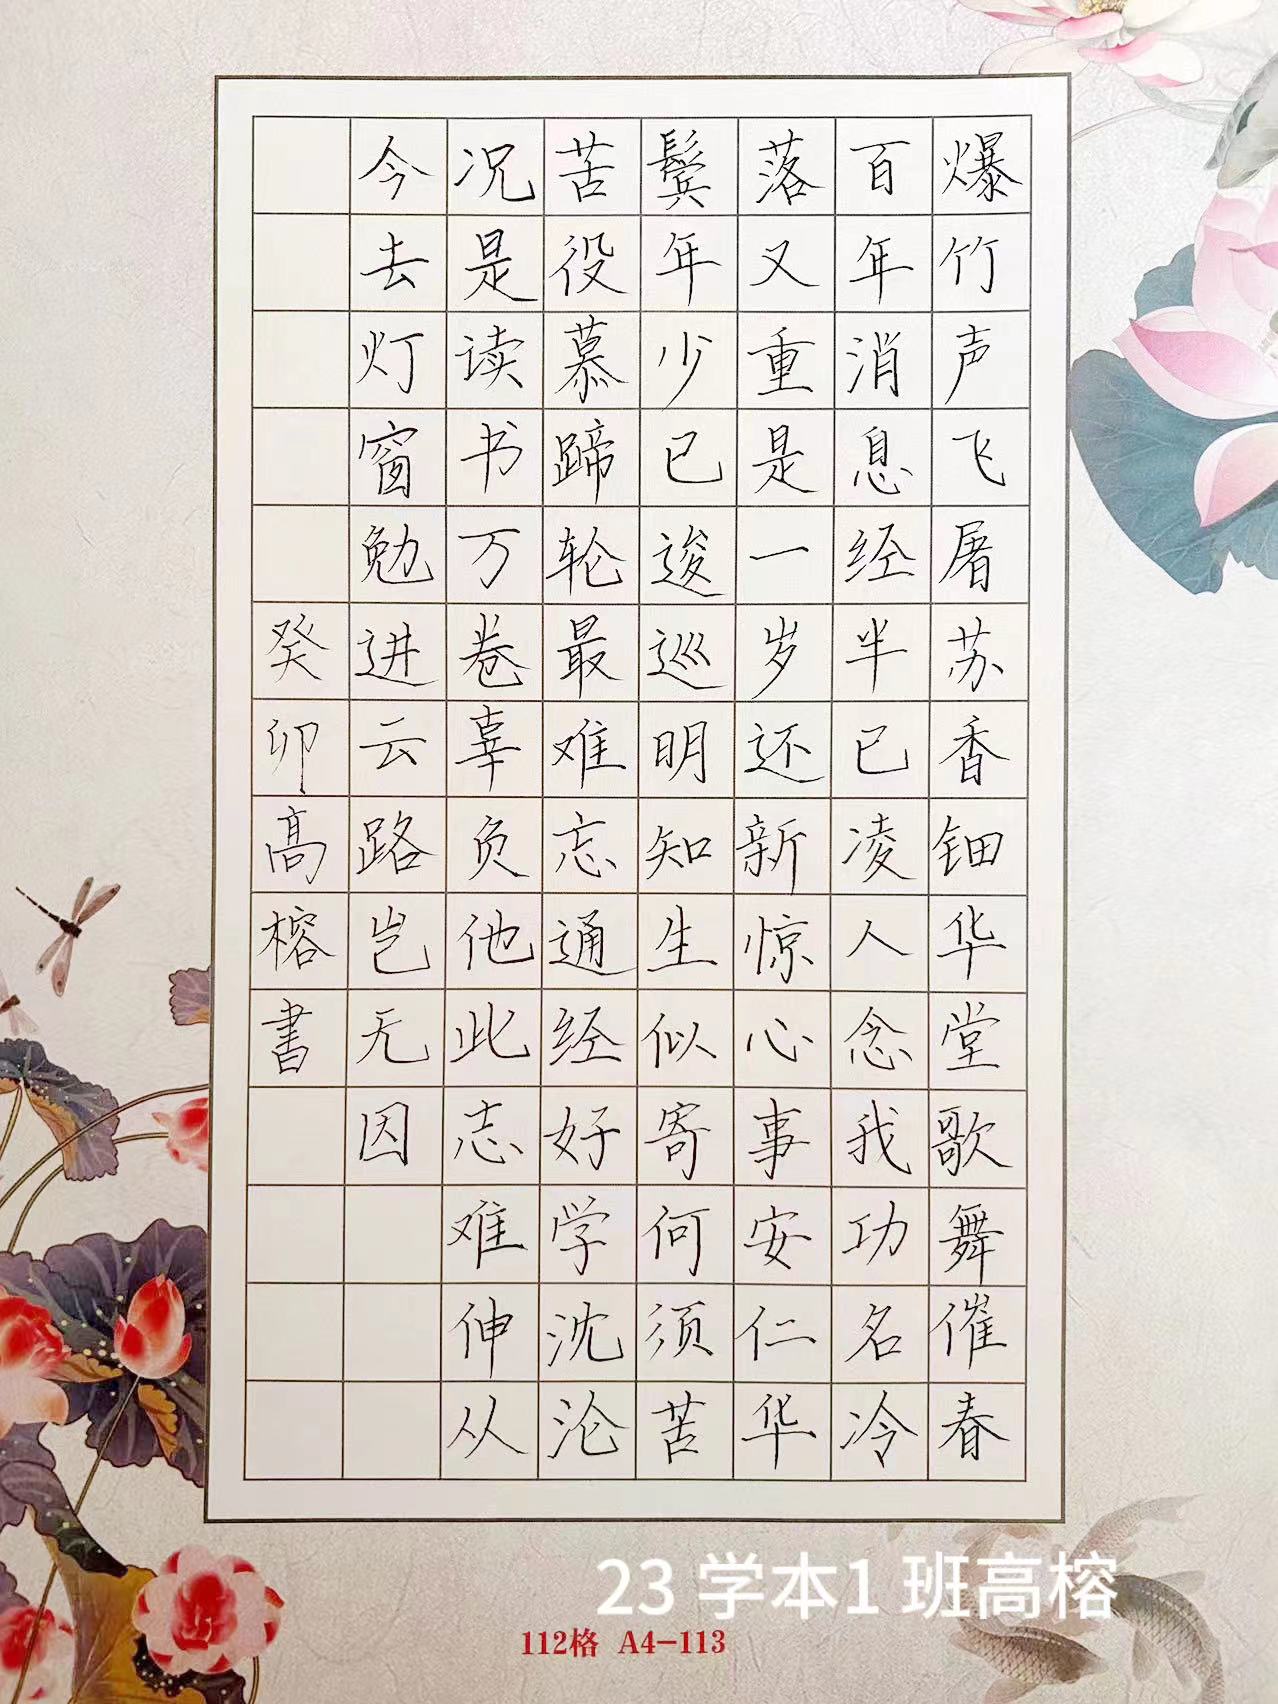 爆竹声飞屠苏香钿华堂歌舞催春
百年消息经半已凌人念我功名冷
落又重是一岁还新惊心事安仁华
鬓年少已逡巡明知生似寄何须苦
苦役慕蹄轮最难忘通经好学沈沦
况是读书万卷辜负他此志难伸从
今去灯窗勉进云路岂无因
癸卯高榕書
23 学本1 班高榕
112格 A4-113